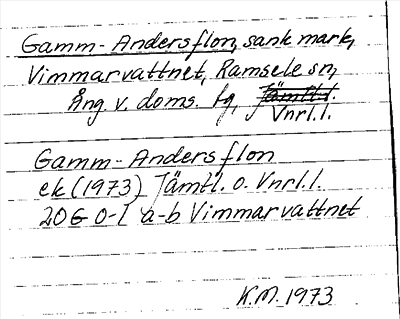 Gamm-Andersflon, sank mark,
Vimmarvattnet, Ramsele sn,
Ång v. doms. fg, Jämtl.l.
Vnrl.l.
Gamm-Andersflon
ek (1973) Jämtl. o. Vnrl.l.
20G 0-1 a-b Vimmarvattnet
K.M. 1973